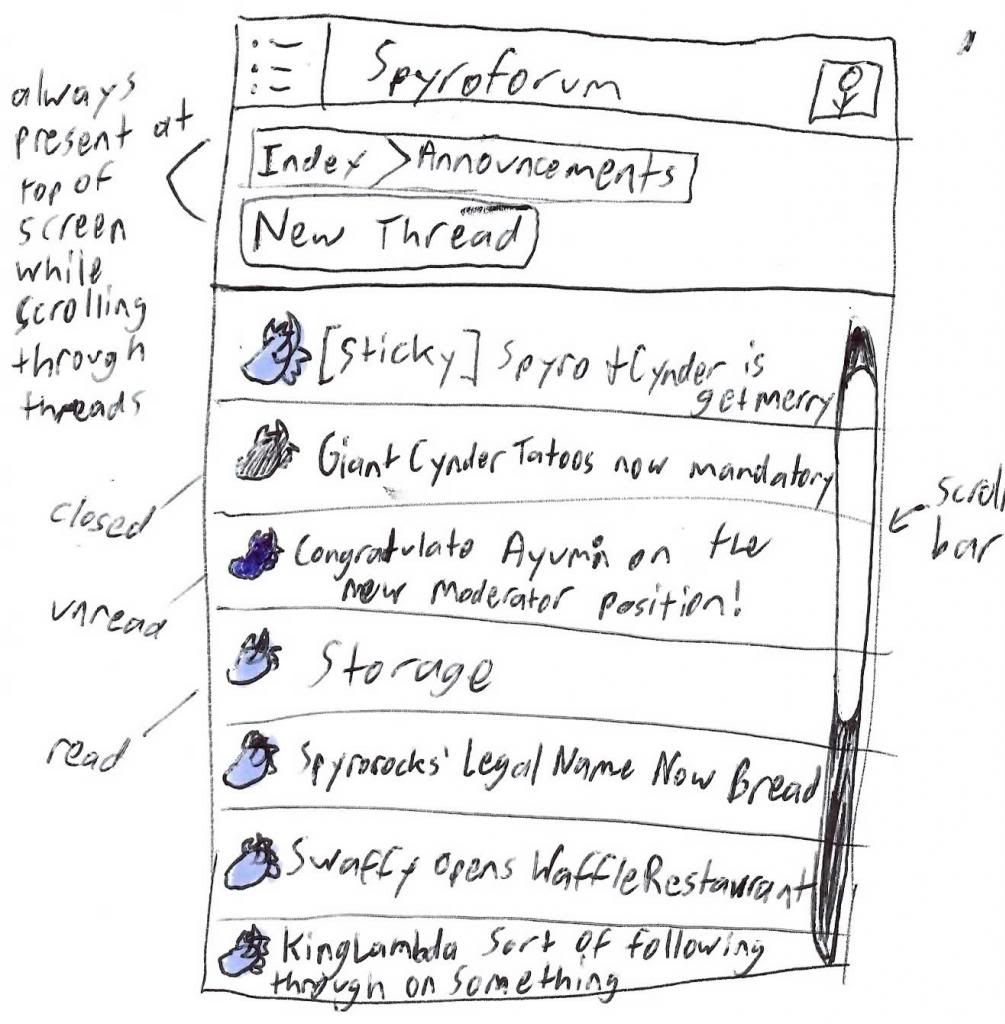 Spyroforum
always
present at
top of
screen
while
scrolling
through
threads
Index > Announcements
New Thread
[Sticky] Spyro + Cynder is
get merry
Giant Cynder Tatoos now mandatory
closed
scroll
bar
Congratulate Ayumi on the
new moderator position!
unread
Storage
read
Spyrorocks' Legal Name Now Bread
Swaffy opens Waffle Restaurant
KingLambda sort of following
through on something